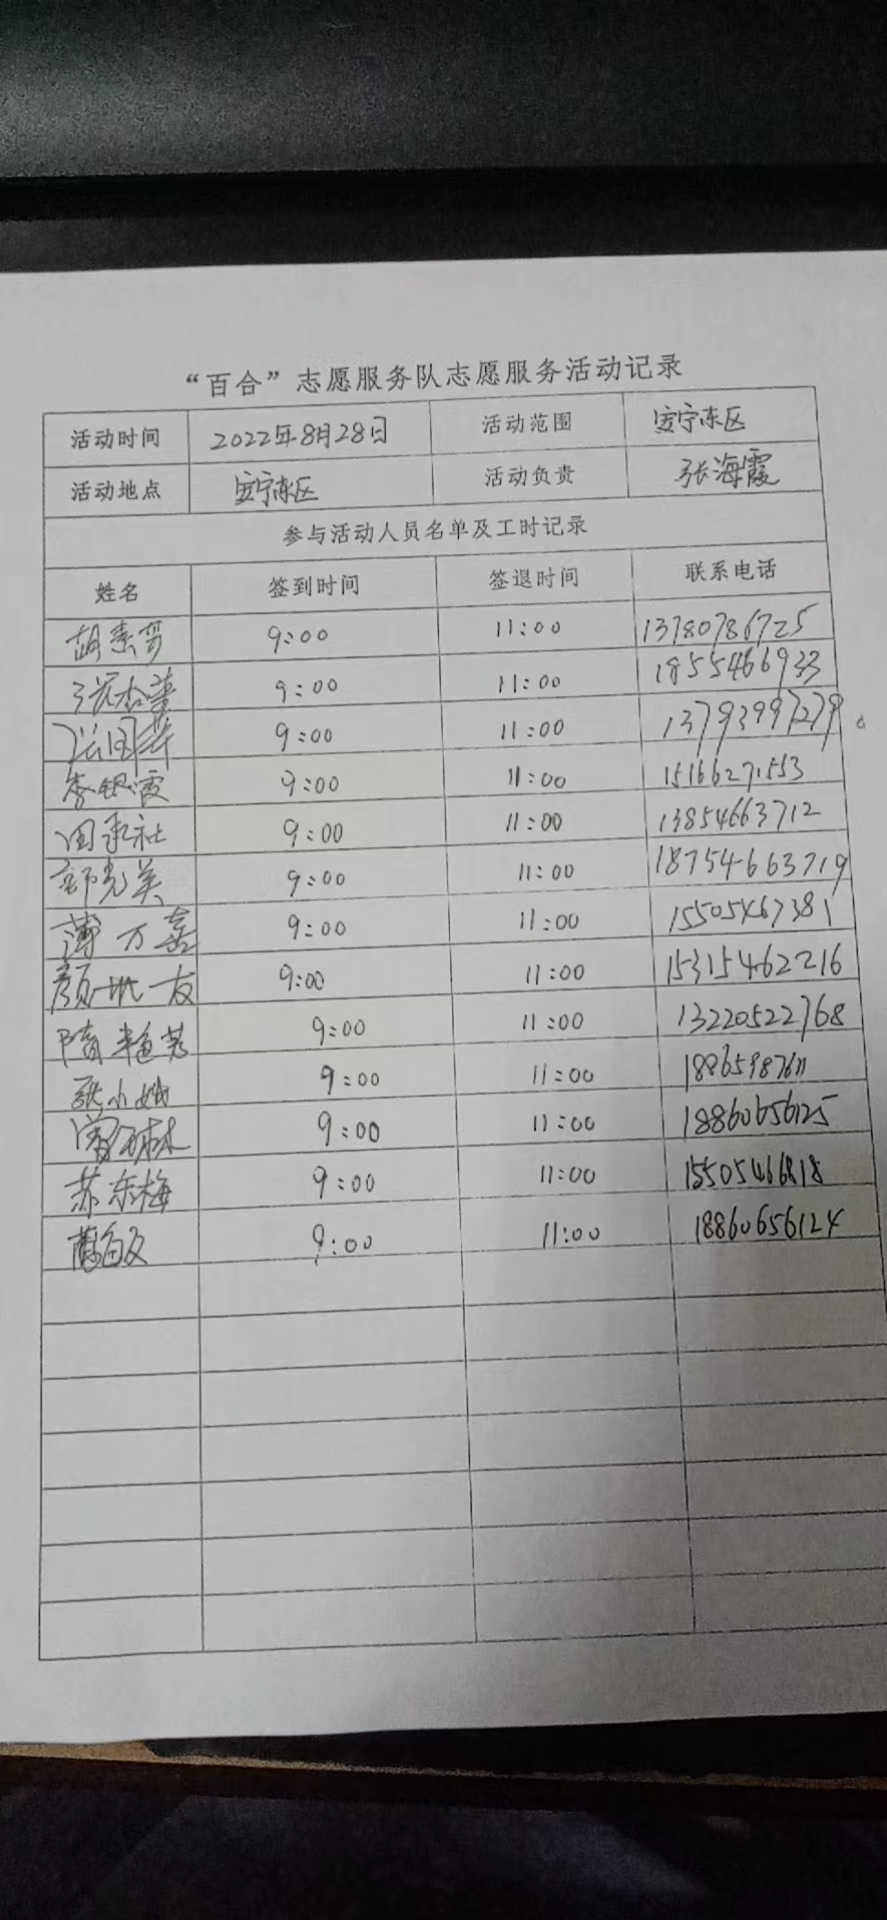 “百合”志愿服务队志愿服务活动记录
活动时间 2022年8月28日 活动范围 安宁东区
活动地点 安宁东区 活动负责 张海霞
参与活动人员名单及工时记录
姓名 签到时间 签退时间 联系电话
9:00 11:00 13780786725
9:00 11:00 1855466933
9:00 11:00 13793997279
李银霞 9:00 11:00 15166271553
田承社 9:00 11:00 13854663712
郭光美 9:00 11:00 18754663719
薄万嘉 9:00 11:00 15505467381
9:00 11:00 15315462216
9:00 11:00 13220522768
张小娥 9:00 11:00
9:00 11:00 18860656125
苏东梅 9:00 11:00 15505466818
9:00 11:00 18860656124